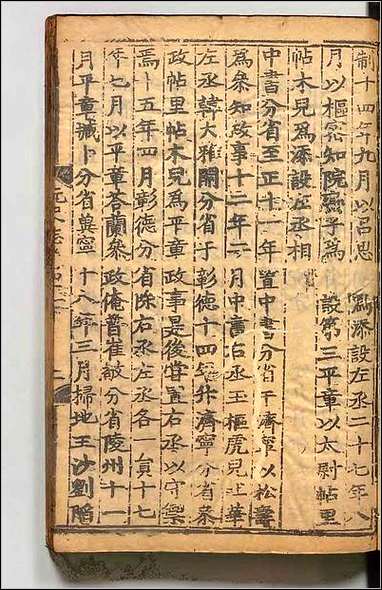 制十四年九月以呂思爲添設左丞二十七年八
月以樞密知院蠻子爲設第三平章以太尉帖里
帖木兒爲添設左丞相
中書分省至正十一年置中書分省于濟寧以松壽
爲參知政事十二年二月中書右丞玉樞虎兒吐華
左丞韓大雅開分省于彰德十四年升濟寧分省參
政帖里帖木兒爲平章政事是後嘗置右丞以守禦
焉十五年四月彰德分省除右丞左丞各一員十七
年七月以平章荅蘭參政俺普崔敏分省陵州十一
月平章臧卜分省冀寧十八年三月掃地王沙劉陷